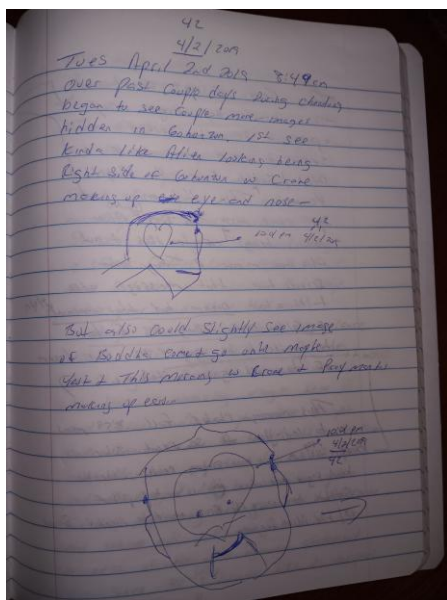 42
4/2/2019
Tues April 2nd 2019 8:49am
Over Past Couple days during chanting
began to see Couple more images
hidden in Gohonzon 1st see
Kinda like Alien looking being
Right Side of Gohonzon w Crane
making up eye and nose-
42
4/2/2019
But also Could Slightly See image
of Buddha Come & go until
Yest & This Morning w Crane &
making up
4/2/2019
42